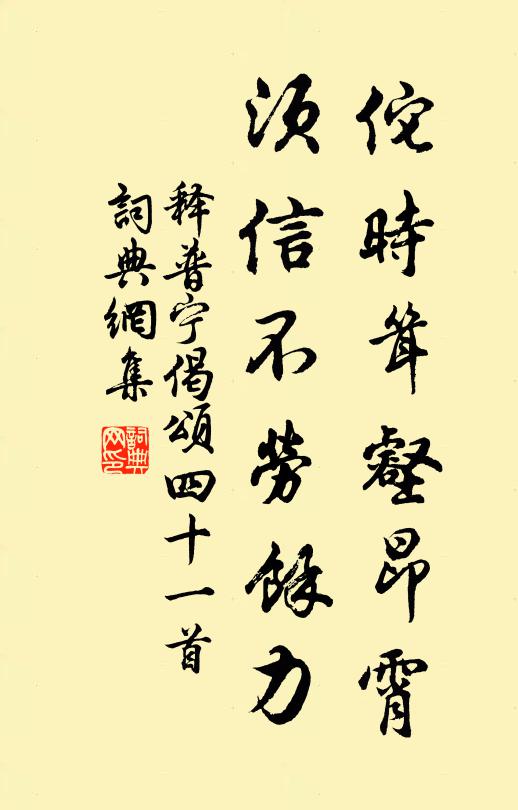 佗時耸壑昂霄
須信不勞餘力
释普宁偈頌四十一首
詞典網集
詞典网印